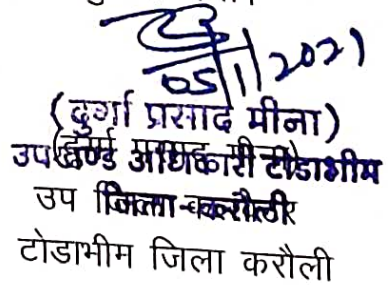 05/1/2021
(दुर्गा प्रसाद मीना)
उपखण्ड अधिकारी टोडाभीम
उप जिला
टोडाभीम जिला करौली